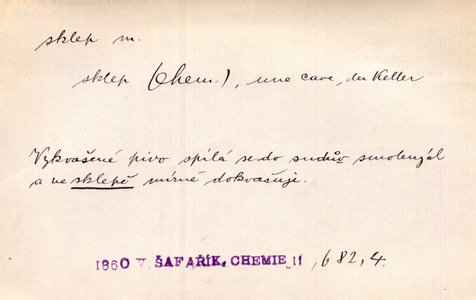 sklep m.
sklep (Chem.), une cave, der Keller
Vykvašené pivo spílá se do sudův smolených
a ve sklepě mírně dokvašuje.
1860 V. ŠAFAŘÍK, CHEMIE II, 682, 4.